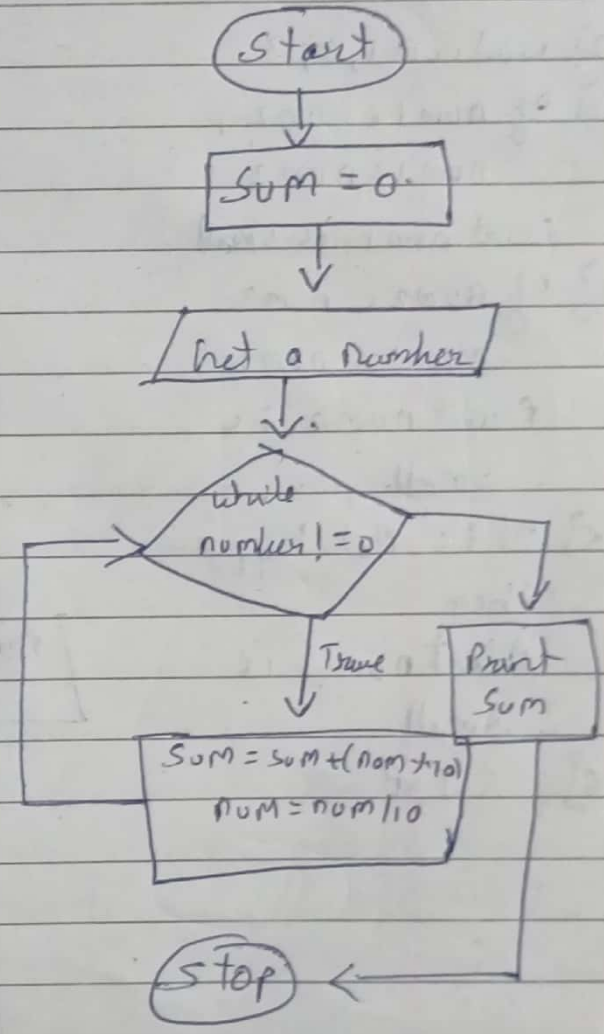 Start
Sum = 0
Get a number
while
number! = 0
True
Print
Sum
Sum = sum + (num % 10)
num = num / 10
Stop